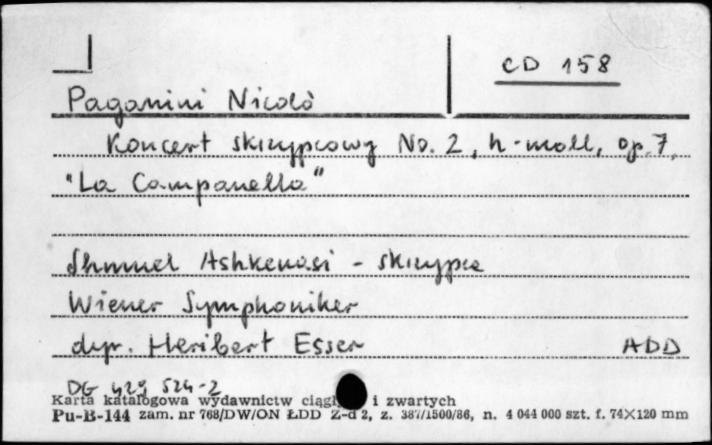 CD 158
Paganini Nicolò
Koncert skrzypcowy No. 2, h-moll, op. 7,
"La Campanella"
Shmuel Ashkenasi - skrzypce
Wiener Symphoniker
dyr. Heribert Esser ADD
DG 429 524-2
Karta katalogowa wydawnictw i zwartych
Pu-B-144 zam. nr 768/DW/ON ŁDD Z-d 2, z. 387/1500/86, n. 4 044 000 szt. f. 74×120 mm